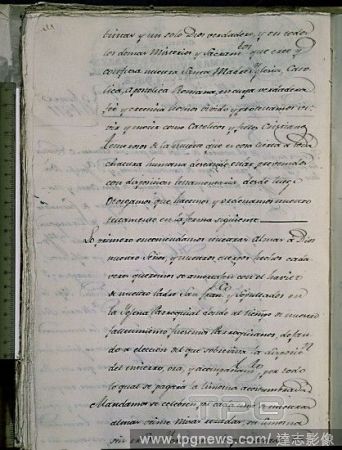 tintas y un solo Dios verdadero, y en todos
los demas Misterios y Sacram.tos que cree y
confiesa nuestra Santa Madre Yglesia, Cato
lica, Apostolica Romana, en cuya verdadera
feé y creencia hemos vivido y protextamos vi
vir y morir como Catolicos y fieles Cristianos
temerosos de la muerte que es cosa cierta á toda
criatura humana deseando estar prevenidos
con disposicion testamentaria desde luego
Otorgamos que hacemos y ordenamos nuestro
testamento en la forma siguiente
Lo primero encomendamos nuestras almas á Dios
nuestro Señor, y nuestros cuerpos hechos cada
veres queremos se amortajen con el havito
de nuestro Padre San Fran.co y sepultados en
la Yglesia Parroquial donde al tiempo de nuestro
fallecimiento fueremos Parroquianos, dejan
do á eleccion del que sobreviva la disposic.n
del entierro, ora, y acompañam.to y por todo
lo qual se pagará la limosna acostumbrada
Mandamos se celebren, por cada uno de nuestras
almas veinte misas rezadas, su limosna
TPG
www.tpgnews.com/達志影像